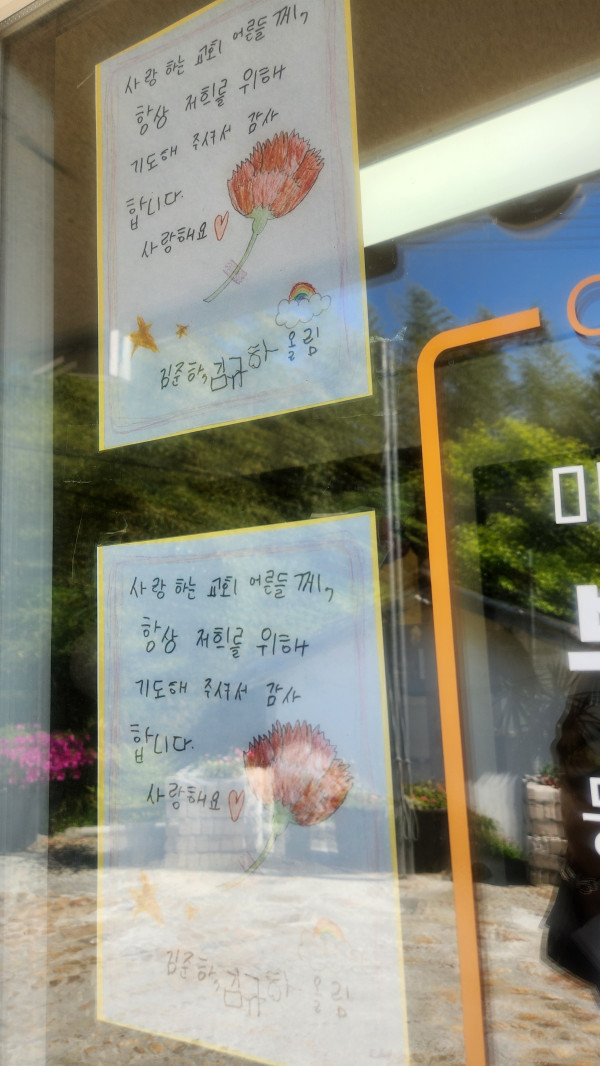 사랑 하는 교회 어른들 께,
항상 저희를 위해
기도해 주셔서 감사
합니다.
사랑해요
김준하, 김규하 올림
사랑 하는 교회 어른들 께,
항상 저희를 위해
기도해 주셔서 감사
합니다.
사랑해요
김준하, 김규하 올림